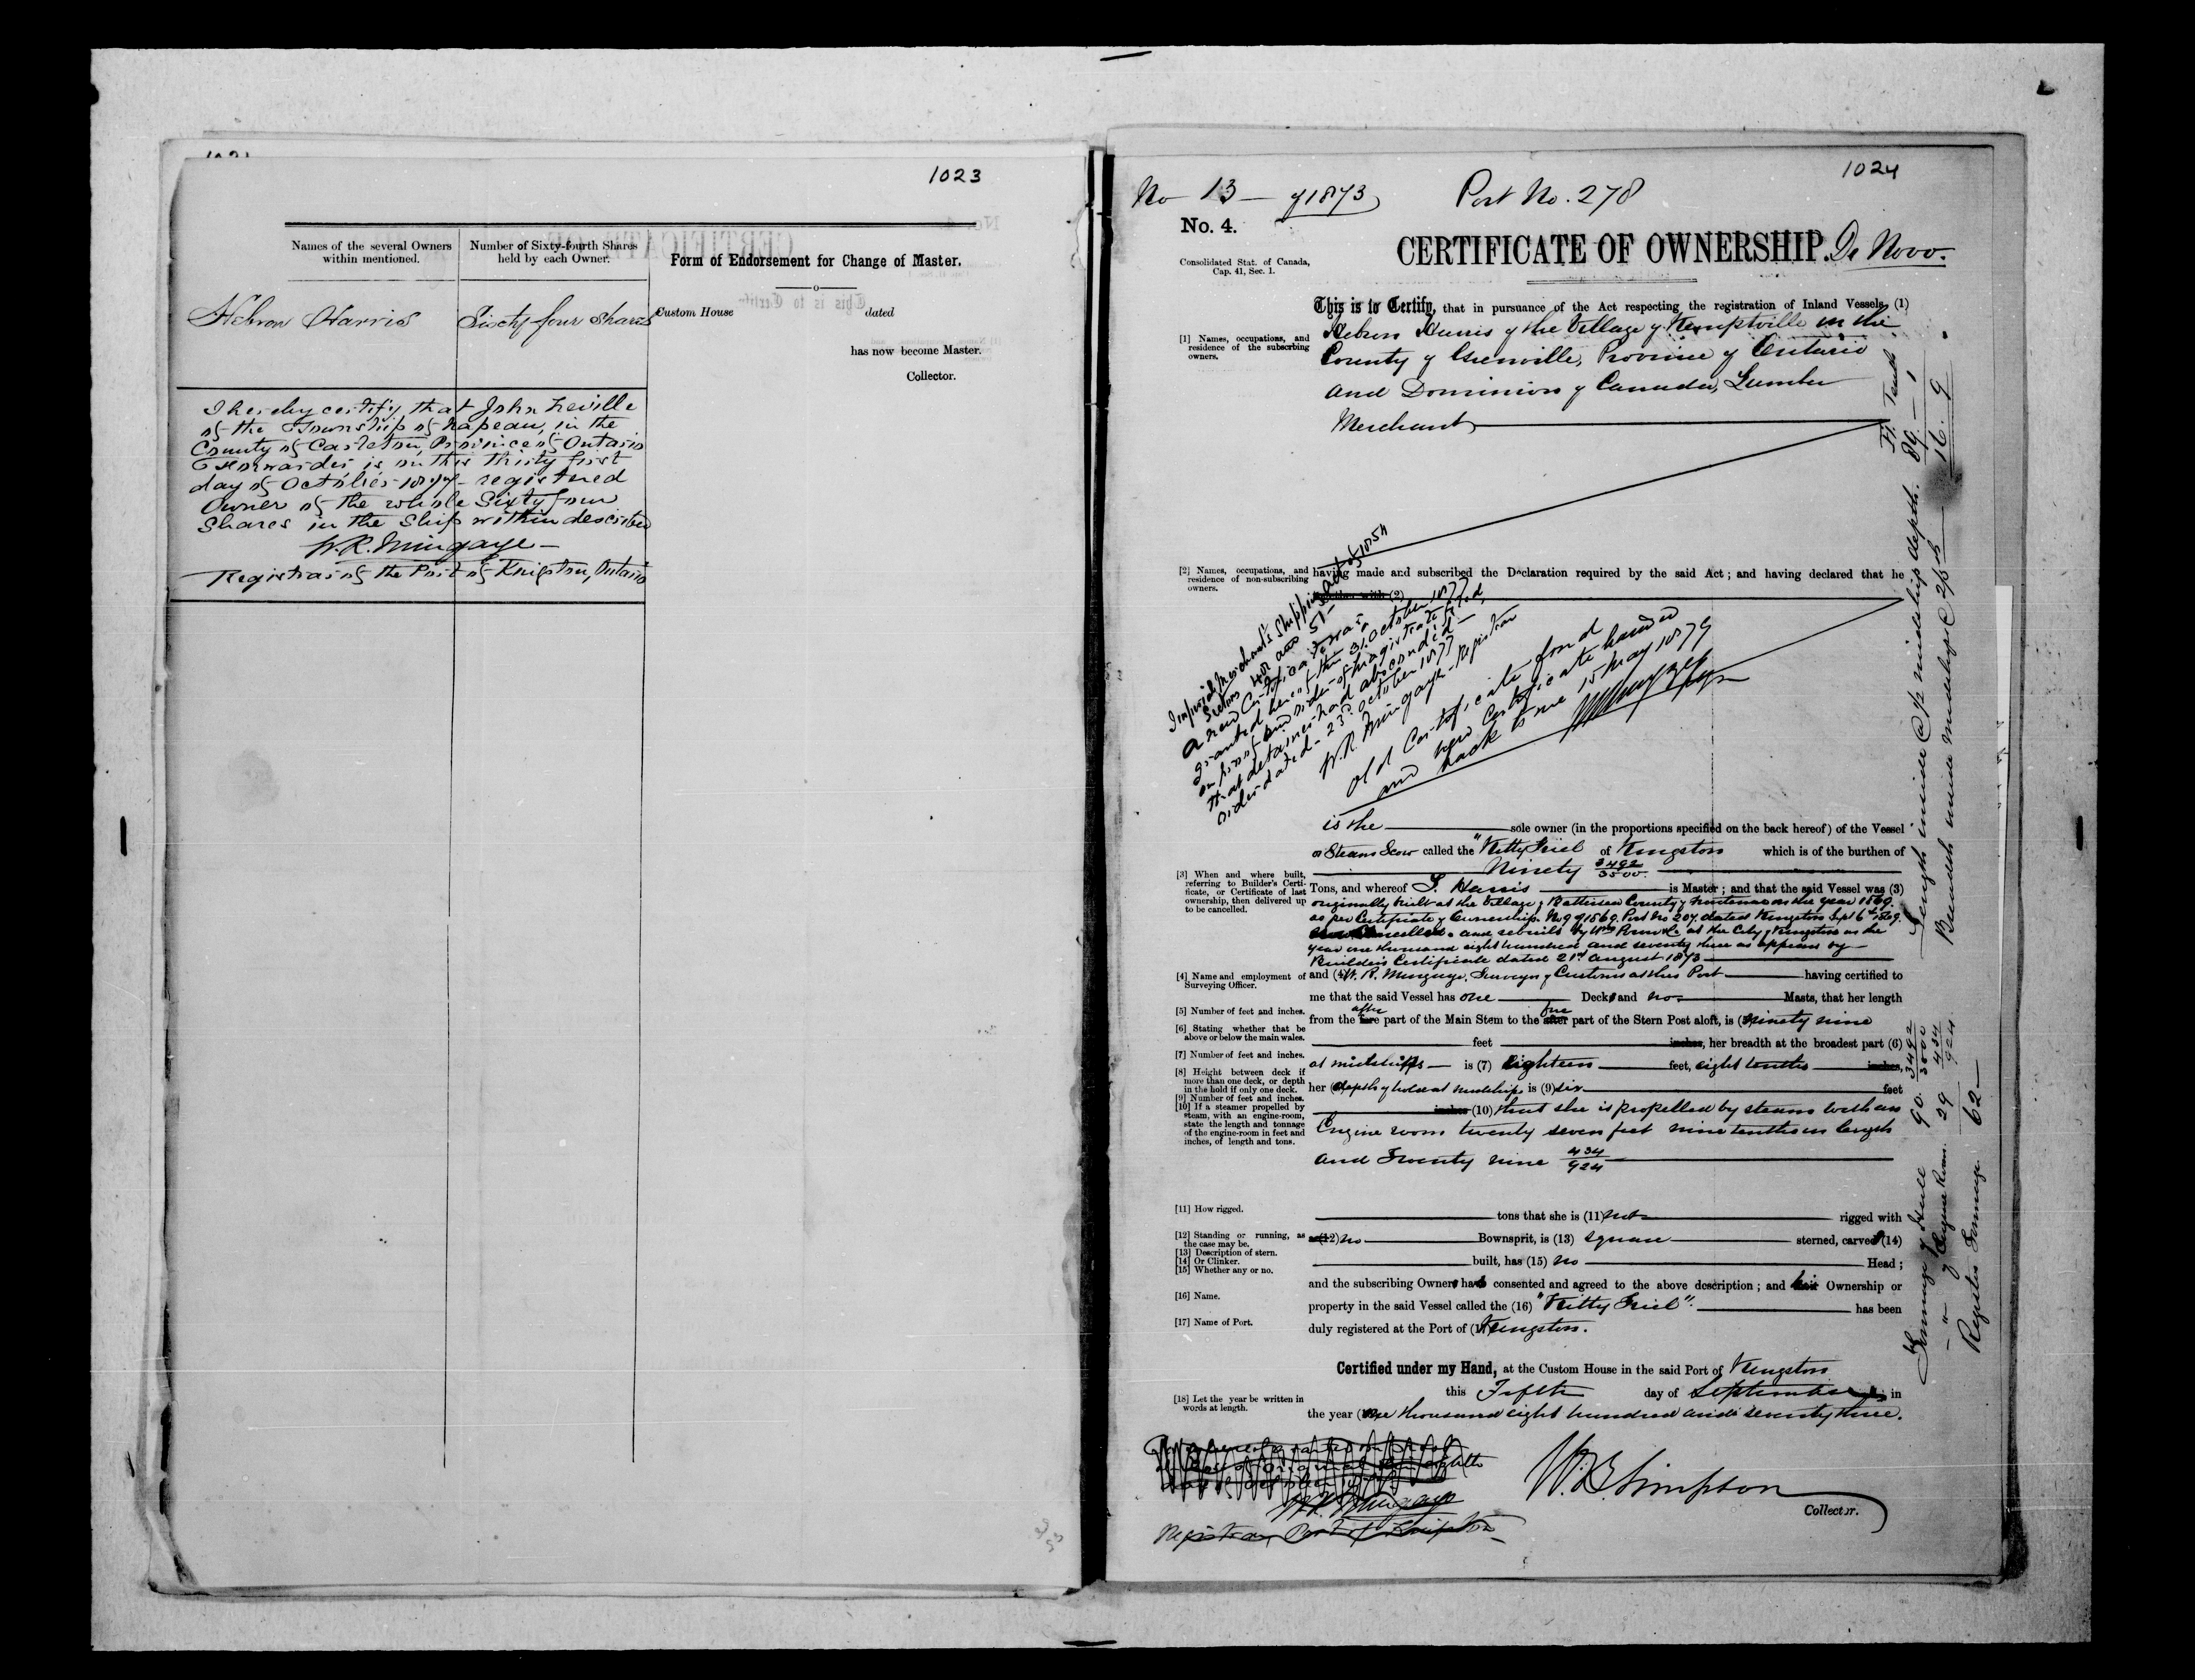 1023
Names of the several Owners
within mentioned.
Number of Sixty-fourth Shares
held by each Owner.
Form of Endorsement for Change of Master.
Hebron Harris
Sixty four shares
Custom House
dated
has now become Master.
Collector.
I hereby certify that John Neville
of the Township of Napean, in the
County of Carleton, Province of Ontario
Forwarder is on this thirty first
day of October 1877 registered
Owner of the whole Sixty four
Shares in the Ship within described
W. R. Mingaye
Registrar of the Port of Kingston, Ontario
1024
No 13 of 1873
Port No. 278
No. 4.
CERTIFICATE OF OWNERSHIP. De Novo.
Consolidated Stat. of Canada,
Cap. 41, Sec. 1.
This is to Certify, that in pursuance of the Act respecting the registration of Inland Vessels, (1)
[1] Names, occupations, and
residence of the subscrbing
owners.
Hebron Harris of the Village of Kemptville in the
County of Grenville, Province of Ontario
and Dominion of Canada, Lumber
Merchant
[2] Names, occupations, and
residence of non-subscribing
owners.
having made and subscribed the Declaration required by the said Act ; and having declared that he
together with (2)
Merchant's Shipping Act of 1854
Sections 48 and 51
a new Certificate was
granted hereof this 31 October 1877
on proof and order of Magistrate filed,
that detainer had absconded
order dated 23rd October 1877
W. R. Mingaye Registrar
Old Certificate found
and new Certificate handed
back to me 15 May 1879
is the sole owner (in the proportions specified on the back hereof) of the Vessel
or Steam Scow called the "Kitty Friel of Kingston which is of the burthen of
Ninety 3492/3500
[3] When and where built,
referring to Builder's Certi-
ficate, or Certificate of last
ownership, then delivered up
to be cancelled.
Tons, and whereof S. Harris is Master ; and that the said Vessel was (3)
originally built at the Village of Battersea County of Frontenac in the year 1869.
as per Certificate of Ownership No 9 of 1869. Port No 207. dated Kingston Sept 6th 1869.
and rebuilt by at the City of Kingston in the
year one thousand eight hundred and seventy three as appears by
Builder's Certificate dated 21st August 1873
[4] Name and employment of
Surveying Officer.
and (4) W. R. Mingaye, Surveyor of Customs at this Port having certified to
me that the said Vessel has one Deck and no Masts, that her length
[5] Number of feet and inches.
after fore
from the fore part of the Main Stem to the after part of the Stern Post aloft, is (5) ninety nine
[6] Stating whether that be
above or below the main wales.
feet inches, her breadth at the broadest part (6)
[7] Number of feet and inches.
at midships is (7) Eighteen feet, eight tenths inches,
[8] Height between deck if
more than one deck, or depth
in the hold if only one deck.
[9] Number of feet and inches.
her (8) depth of hold at midships is (9) six feet
[10] If a steamer propelled by
steam, with an engine-room,
state the length and tonnage
of the engine-room in feet and
inches, of length and tons.
inches (10) that she is propelled by steam with an
Engine room twenty seven feet nine tenths in length
and Twenty nine 434/924
[11] How rigged.
tons that she is (11) not rigged with
[12] Standing or running, as
the case may be.
[13] Description of stern.
[14] Or Clinker.
[15] Whether any or no.
a (12) no Bownsprit, is (13) square sterned, carvel (14)
built, has (15) no Head ;
and the subscribing Owner has consented and agreed to the above description ; and his Ownership or
[16] Name.
property in the said Vessel called the (16) "Kitty Friel". has been
[17] Name of Port.
duly registered at the Port of (17) Kingston.
Certified under my Hand, at the Custom House in the said Port of Kingston
this Fifth day of September in
[18] Let the year be written in
words at length.
the year (18) One thousand eight hundred and seventy three.
W. R. Mingaye
Registrar, Port of Kingston
W. B. Simpson
Collector.
Ft. Tenth
Length inside @ ½ midship depth. 89 - 1
Breadth inside midships @ 2/3 16. 9
Tonnage of Hull 90. 3492/3500
" of Engine Room 29 434/924
Register Tonnage. 62